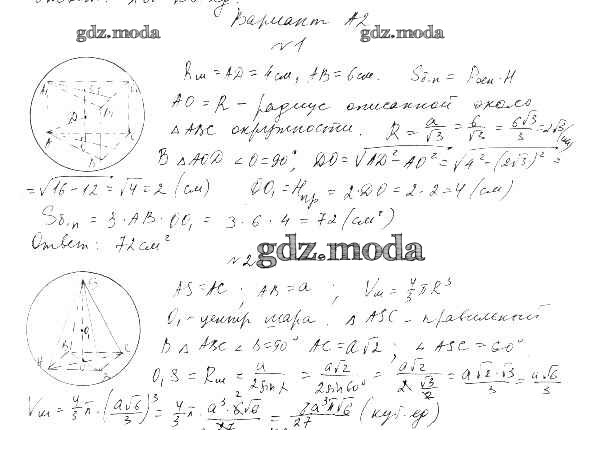 Вариант А2
gdz.moda gdz.moda
№1
Rш = AD = 4 см, AB = 6 см. Sб.п = Pосн·H
AO = R – радиус описанной около
△ABC окружности. R = a/√3 = 6/√3 = 6√3/3 = 2√3 (см)
В △AOD ∠O = 90°; DO = √(AD² - AO²) = √(4² - (2√3)²) =
= √(16 - 12) = √4 = 2 (см) OO₁ = Hпр = 2·DO = 2·2 = 4 (см)
Sб.п = 3·AB·OO₁ = 3·6·4 = 72 (см²)
Ответ: 72 см²
№2
gdz.moda
AS = AC; AB = a; Vш = 4/3 πR³
O₁ – центр шара. △ASC – правильный
В △ABC ∠B = 90° AC = a√2; ∠ASC = 60°
O₁S = Rш = a/2sinα = a√2/2sin60° = a√2/(2·√3/2) = a√2·√3/3 = a√6/3
Vш = 4/3 π·(a√6/3)³ = 4/3 π· a³·6√6/27 = 8a³π√6/27 (куб.ед)